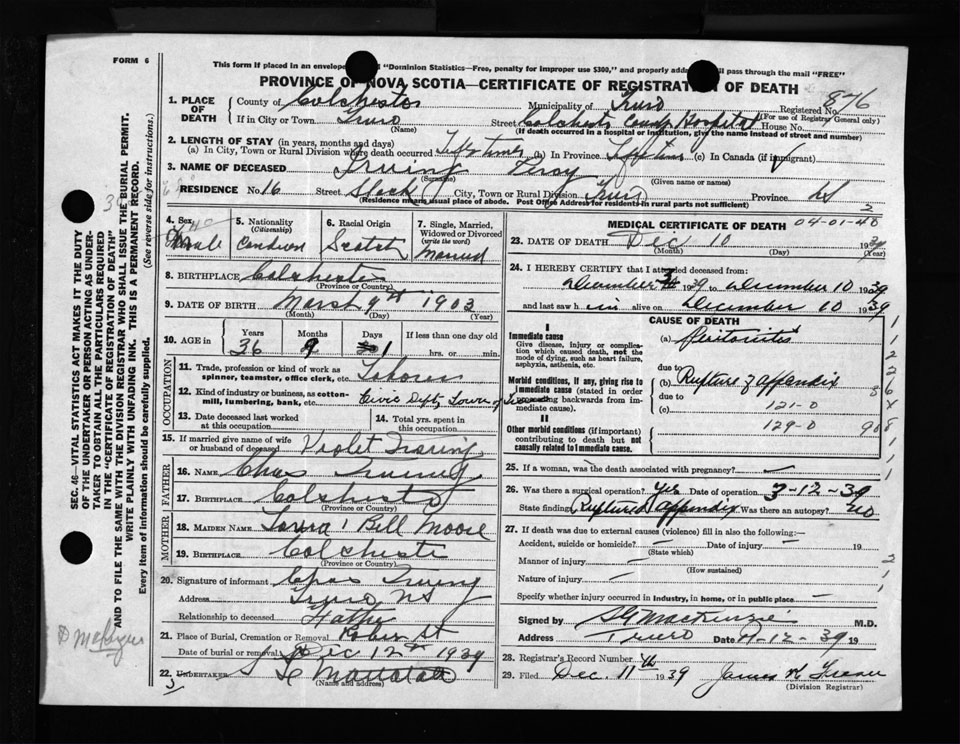 FORM 6
This form if placed in an envelope "Dominion Statistics—Free, penalty for improper use $300," and properly addressed pass through the mail "FREE"
PROVINCE OF NOVA SCOTIA—CERTIFICATE OF REGISTRATION OF DEATH
Registered No. 876
(For use of Registry General only)
1. PLACE OF DEATH
County of Colchester
Municipality of Truro
If in City or Town Truro
(Name)
Street Colchester County Hospital House No.
(If death occurred in a hospital or institution, give the name instead of street and number)
2. LENGTH OF STAY (in years, months and days)
(a) In City, Town or Rural Division where death occurred Life time (b) In Province Life time (c) In Canada (if immigrant)
3. NAME OF DECEASED Irving Percy
(Surname) (Given name or names)
RESIDENCE No. 16 Street City, Town or Rural Division Truro Province NS
(Residence means usual place of abode. Post Office Address for residents in rural parts not sufficient)
4. Sex Male
5. Nationality (Citizenship)
6. Racial Origin Scotch
7. Single, Married, Widowed or Divorced (write the word) Married
8. BIRTHPLACE Colchester
(Province or Country)
9. DATE OF BIRTH March 9th 1903
(Month) (Day) (Year)
10. AGE in Years Months Days If less than one day old
36 9 1 hrs. or min.
OCCUPATION
11. Trade, profession or kind of work as spinner, teamster, office clerk, etc. Laborer
12. Kind of industry or business, as cotton-mill, lumbering, bank, etc. Civic Dept, Town of
13. Date deceased last worked at this occupation
14. Total yrs. spent in this occupation
15. If married give name of wife or husband of deceased Violet Irving
FATHER
16. NAME Chas Irving
17. BIRTHPLACE Colchester
(Province or Country)
MOTHER
18. MAIDEN NAME Bell Moore
19. BIRTHPLACE Colchester
(Province or Country)
20. Signature of informant Chas Irving
Address Truro NS
Relationship to deceased Father
21. Place of Burial, Cremation or Removal Robie St
Date of burial or removal Dec 12th 1939
22. UNDERTAKER
(Name and address)
MEDICAL CERTIFICATE OF DEATH
04-01-40
23. DATE OF DEATH Dec 10 1939
(Month) (Day) (Year)
24. I HEREBY CERTIFY that I attended deceased from:
December 3 1939 to December 10 1939
and last saw him alive on December 10 1939
CAUSE OF DEATH
I
Immediate cause
Give disease, injury or complication which caused death, not the mode of dying, such as heart failure, asphyxia, asthenia, etc.
(a) Peritonitis
due to
Morbid conditions, if any, giving rise to immediate cause (stated in order proceeding backwards from immediate cause).
(b) Rupture of appendix
due to
(c) 121-0
II
Other morbid conditions (if important) contributing to death but not causally related to immediate cause.
129-0
25. If a woman, was the death associated with pregnancy? —
26. Was there a surgical operation? yes Date of operation 3-12-39
State finding Ruptured appendix Was there an autopsy? no
27. If death was due to external causes (violence) fill in also the following:—
Accident, suicide or homicide? — Date of injury — 19
(State which)
Manner of injury —
(How sustained)
Nature of injury —
Specify whether injury occurred in industry, in home, or in public place —
Signed by MacKenzie M.D.
Address Truro Date 11-12-39 19
28. Registrar's Record Number
29. Filed Dec. 11 1939
(Division Registrar)
SEC. 46—VITAL STATISTICS ACT MAKES IT THE DUTY
OF THE UNDERTAKER OR PERSON ACTING AS UNDER-
TAKER TO OBTAIN ALL THE PARTICULARS REQUIRED
IN THE "CERTIFICATE OF REGISTRATION OF DEATH"
AND TO FILE THE SAME WITH THE DIVISION REGISTRAR WHO SHALL ISSUE THE BURIAL PERMIT.
WRITE PLAINLY WITH UNFADING INK. THIS IS A PERMANENT RECORD.
Every item of information should be carefully supplied. (See reverse side for instructions.)